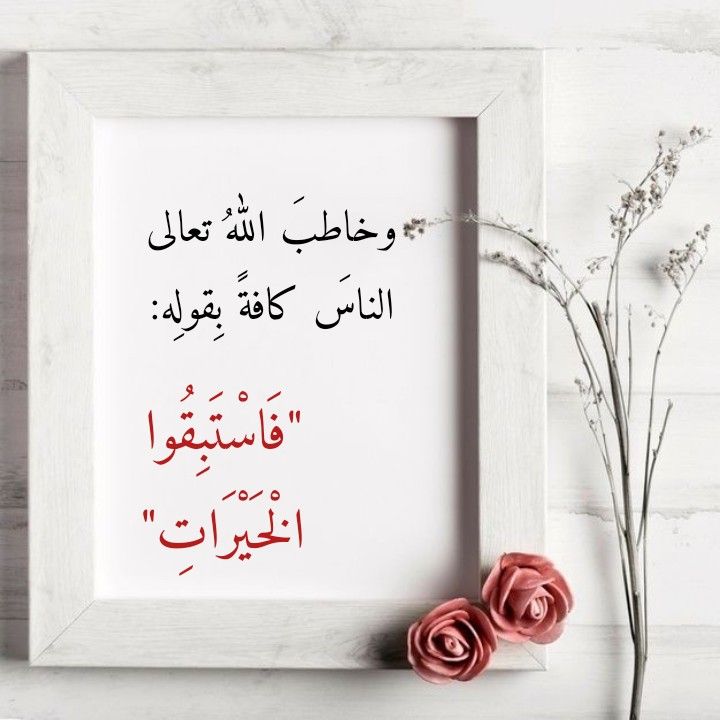 وخاطبَ اللهُ تعالى
الناسَ كافةً بِقولِه:
"فَاسْتَبِقُوا
الْخَيْرَاتِ"